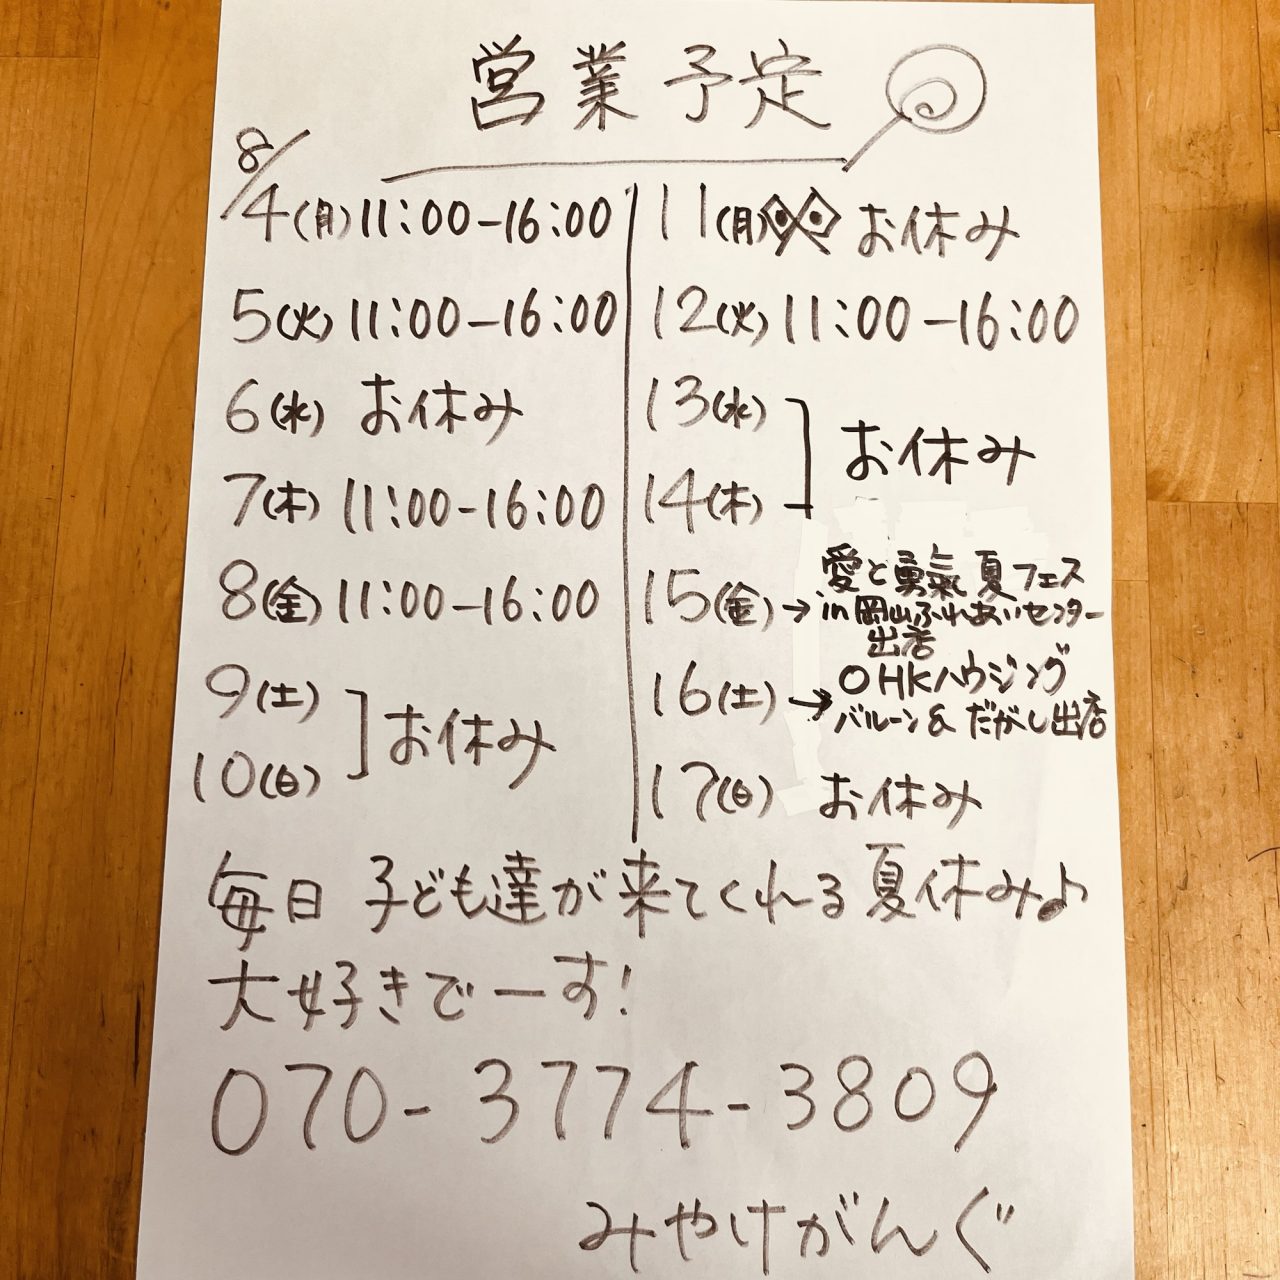 営業予定
8/4(月) 11:00-16:00
5(火) 11:00-16:00
6(水) お休み
7(木) 11:00-16:00
8(金) 11:00-16:00
9(土)
10(日)
お休み
11(月)㊗ お休み
12(火) 11:00-16:00
13(水)
14(木)
お休み
15(金)→ 愛と勇氣 夏フェス
in 岡山ふれあいセンター
出店
16(土)→ OHKハウジング
バルーン& だがし出店
17(日) お休み
毎日 子ども達が来てくれる夏休み♪
大好きでーす!
070-3774-3809
みやけがんぐ